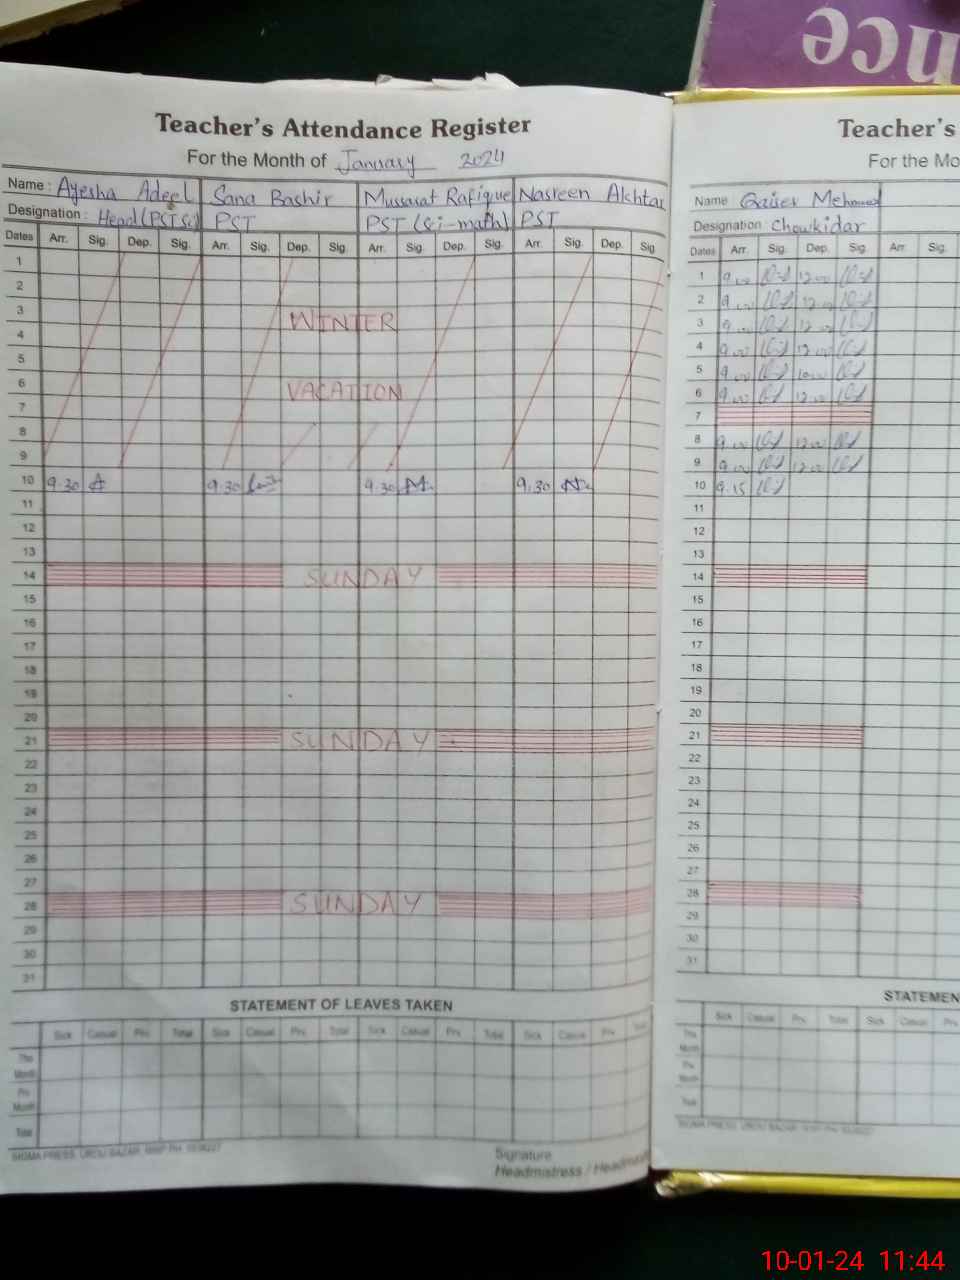 ance
Teacher's Attendance Register
For the Month of January 2024
Name : Ayesha Adeel Sana Bashir Mussarat Rafique Nasreen Akhtar
Designation : Head (PST.Sc) PST PST (Sci-math) PST
Dates Arr. Sig. Dep. Sig. Arr. Sig. Dep. Sig. Arr. Sig. Dep. Sig. Arr. Sig. Dep. Sig
1
2
3 WINTER
4
5
6 VACATION
7
8
9
10 9.30 9.30 9.30 9.30
11
12
13
14 SUNDAY
15
16
17
18
19
20
21 SUNDAY
22
23
24
25
26
27
28 SUNDAY
29
30
31
STATEMENT OF LEAVES TAKEN
Sick Casual Prv. Total Sick Casual Prv. Total Sick Casual Prv. Total Sick Casual Prv. Total
This
Month
Prv.
Month
Total
SIGMA PRESS, URDU BAZAR,
Signature
Headmistress / Headmas
Teacher's
For the Mo
Name Qaiser Mehmood
Designation : Chowkidar
Dates Arr. Sig. Dep. Sig. Arr. Sig.
1 9.00 12.00
2 9.00 12.00
3 9.00 12.00
4 9.00 12.00
5 9.00
6 9.00 12.00
7
8 9.00 12.00
9 9.00 12.00
10 9.15
11
12
13
14
15
16
17
18
19
20
21
22
23
24
25
26
27
28
29
30
31
STATEMEN
Sick Casual Prv. Total Sick Casual Prv.
This
Month
Prv.
Month
Total
SIGMA PRESS, URDU BAZAR,
10-01-24 11:44